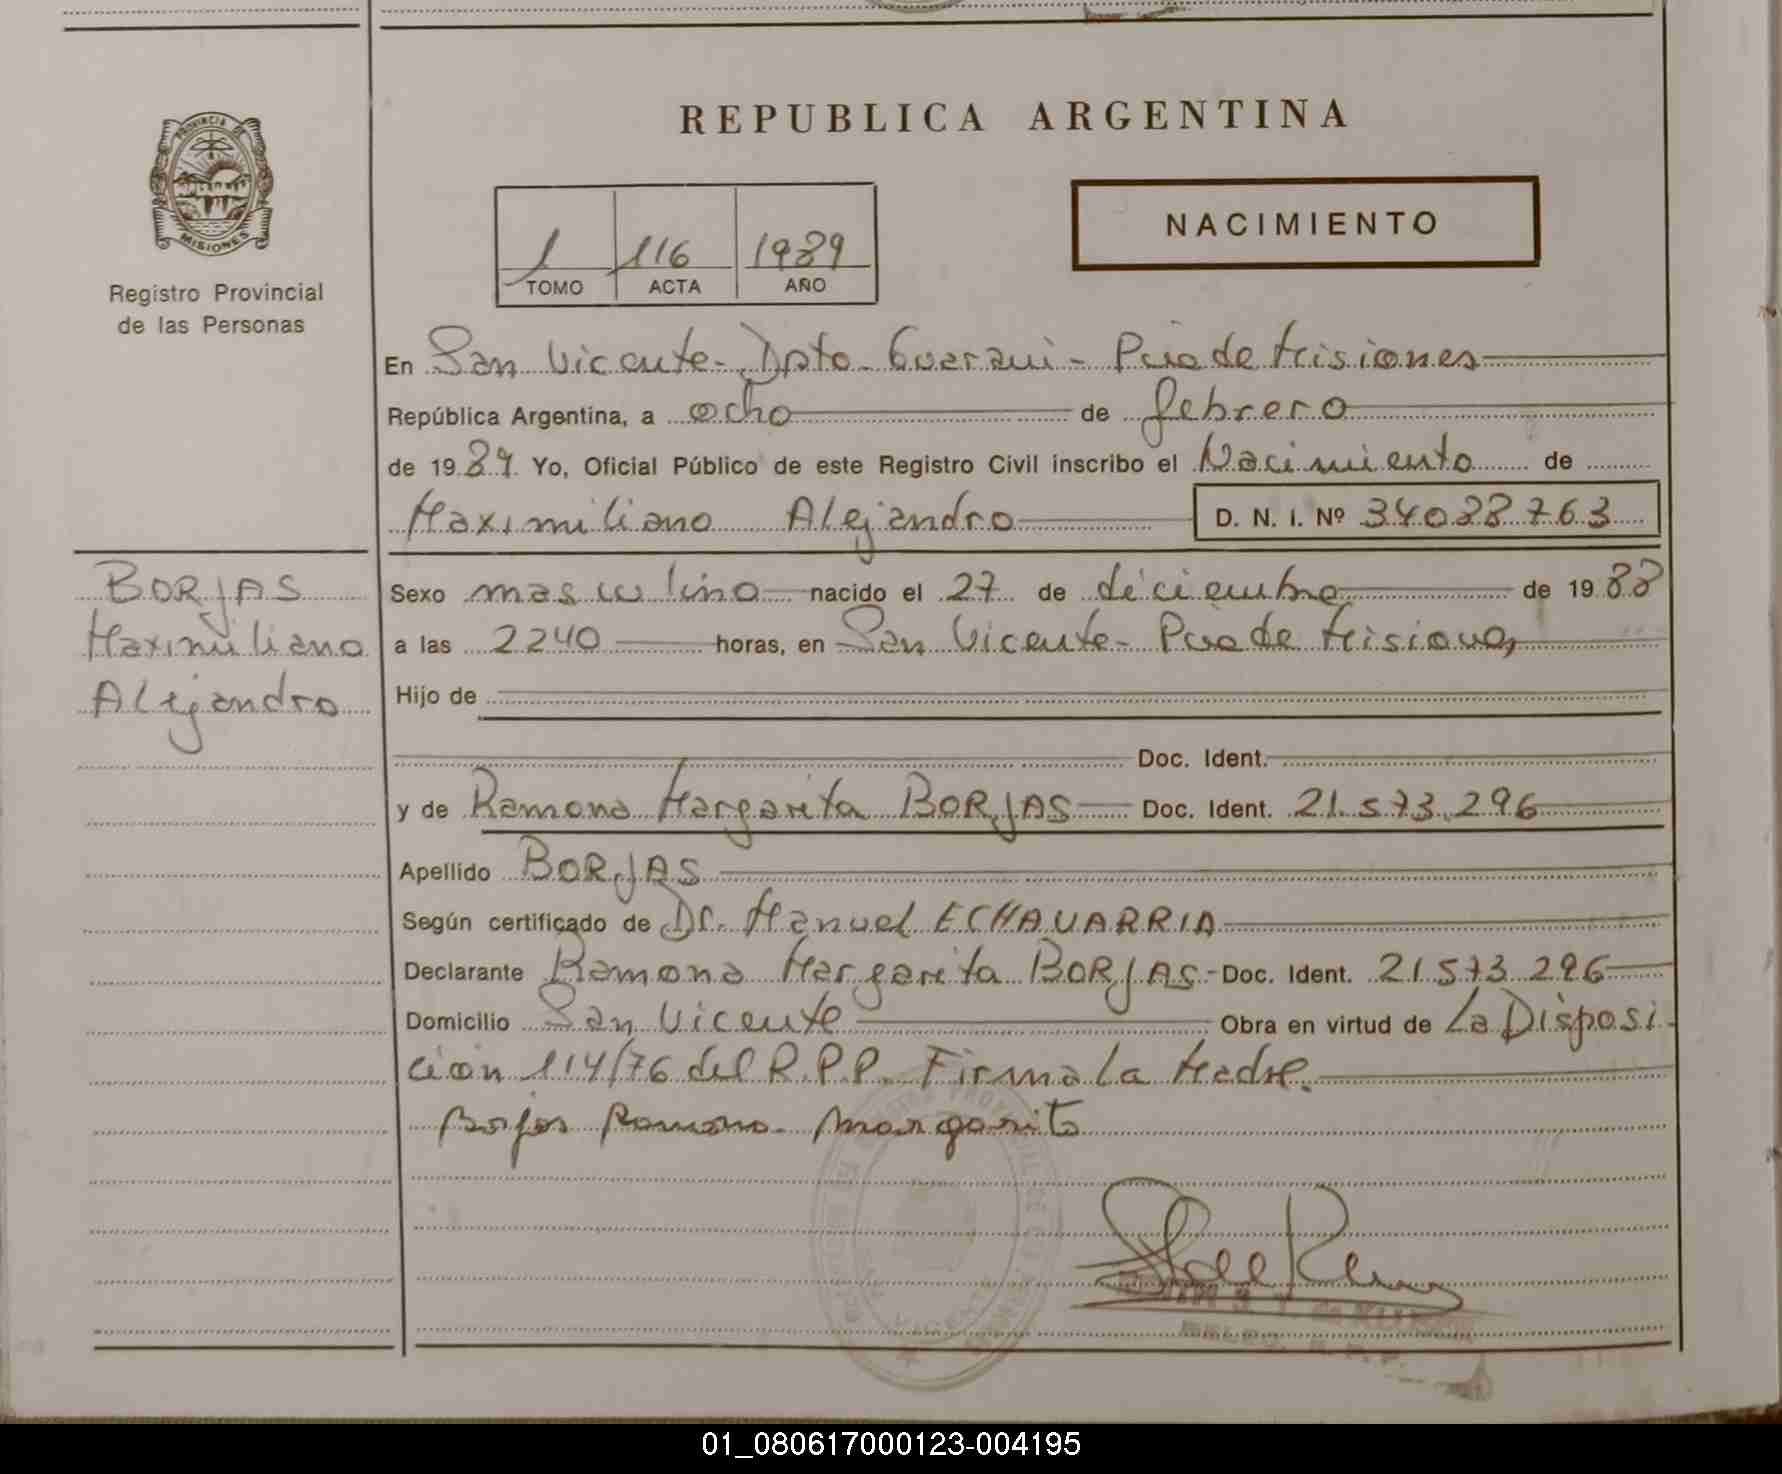 PROVINCIA DE
MISIONES
Registro Provincial
de las Personas
REPUBLICA ARGENTINA
1 116 1989
TOMO ACTA AÑO
NACIMIENTO
En San Vicente- Dpto. Guarani - Pcia de Misiones
República Argentina, a ocho de febrero
de 1989. Yo, Oficial Público de este Registro Civil inscribo el Nacimiento de
Maximiliano Alejandro D. N. I. Nº 34088763
BORJAS
Maximiliano
Alejandro
Sexo masculino nacido el 27 de diciembre de 1988
a las 2240 horas, en San Vicente- Pcia de Misiones
Hijo de
Doc. Ident.
y de Ramona Margarita BORJAS Doc. Ident. 21.573.296
Apellido BORJAS
Según certificado de Dr. Manuel ECHAVARRIA
Declarante Ramona Margarita BORJAS- Doc. Ident. 21 573 296
Domicilio San Vicente Obra en virtud de La Disposi
ción 114/76 del R.P.P. Firma La Madre.
Borjas Ramona Margarita
01_080617000123-004195